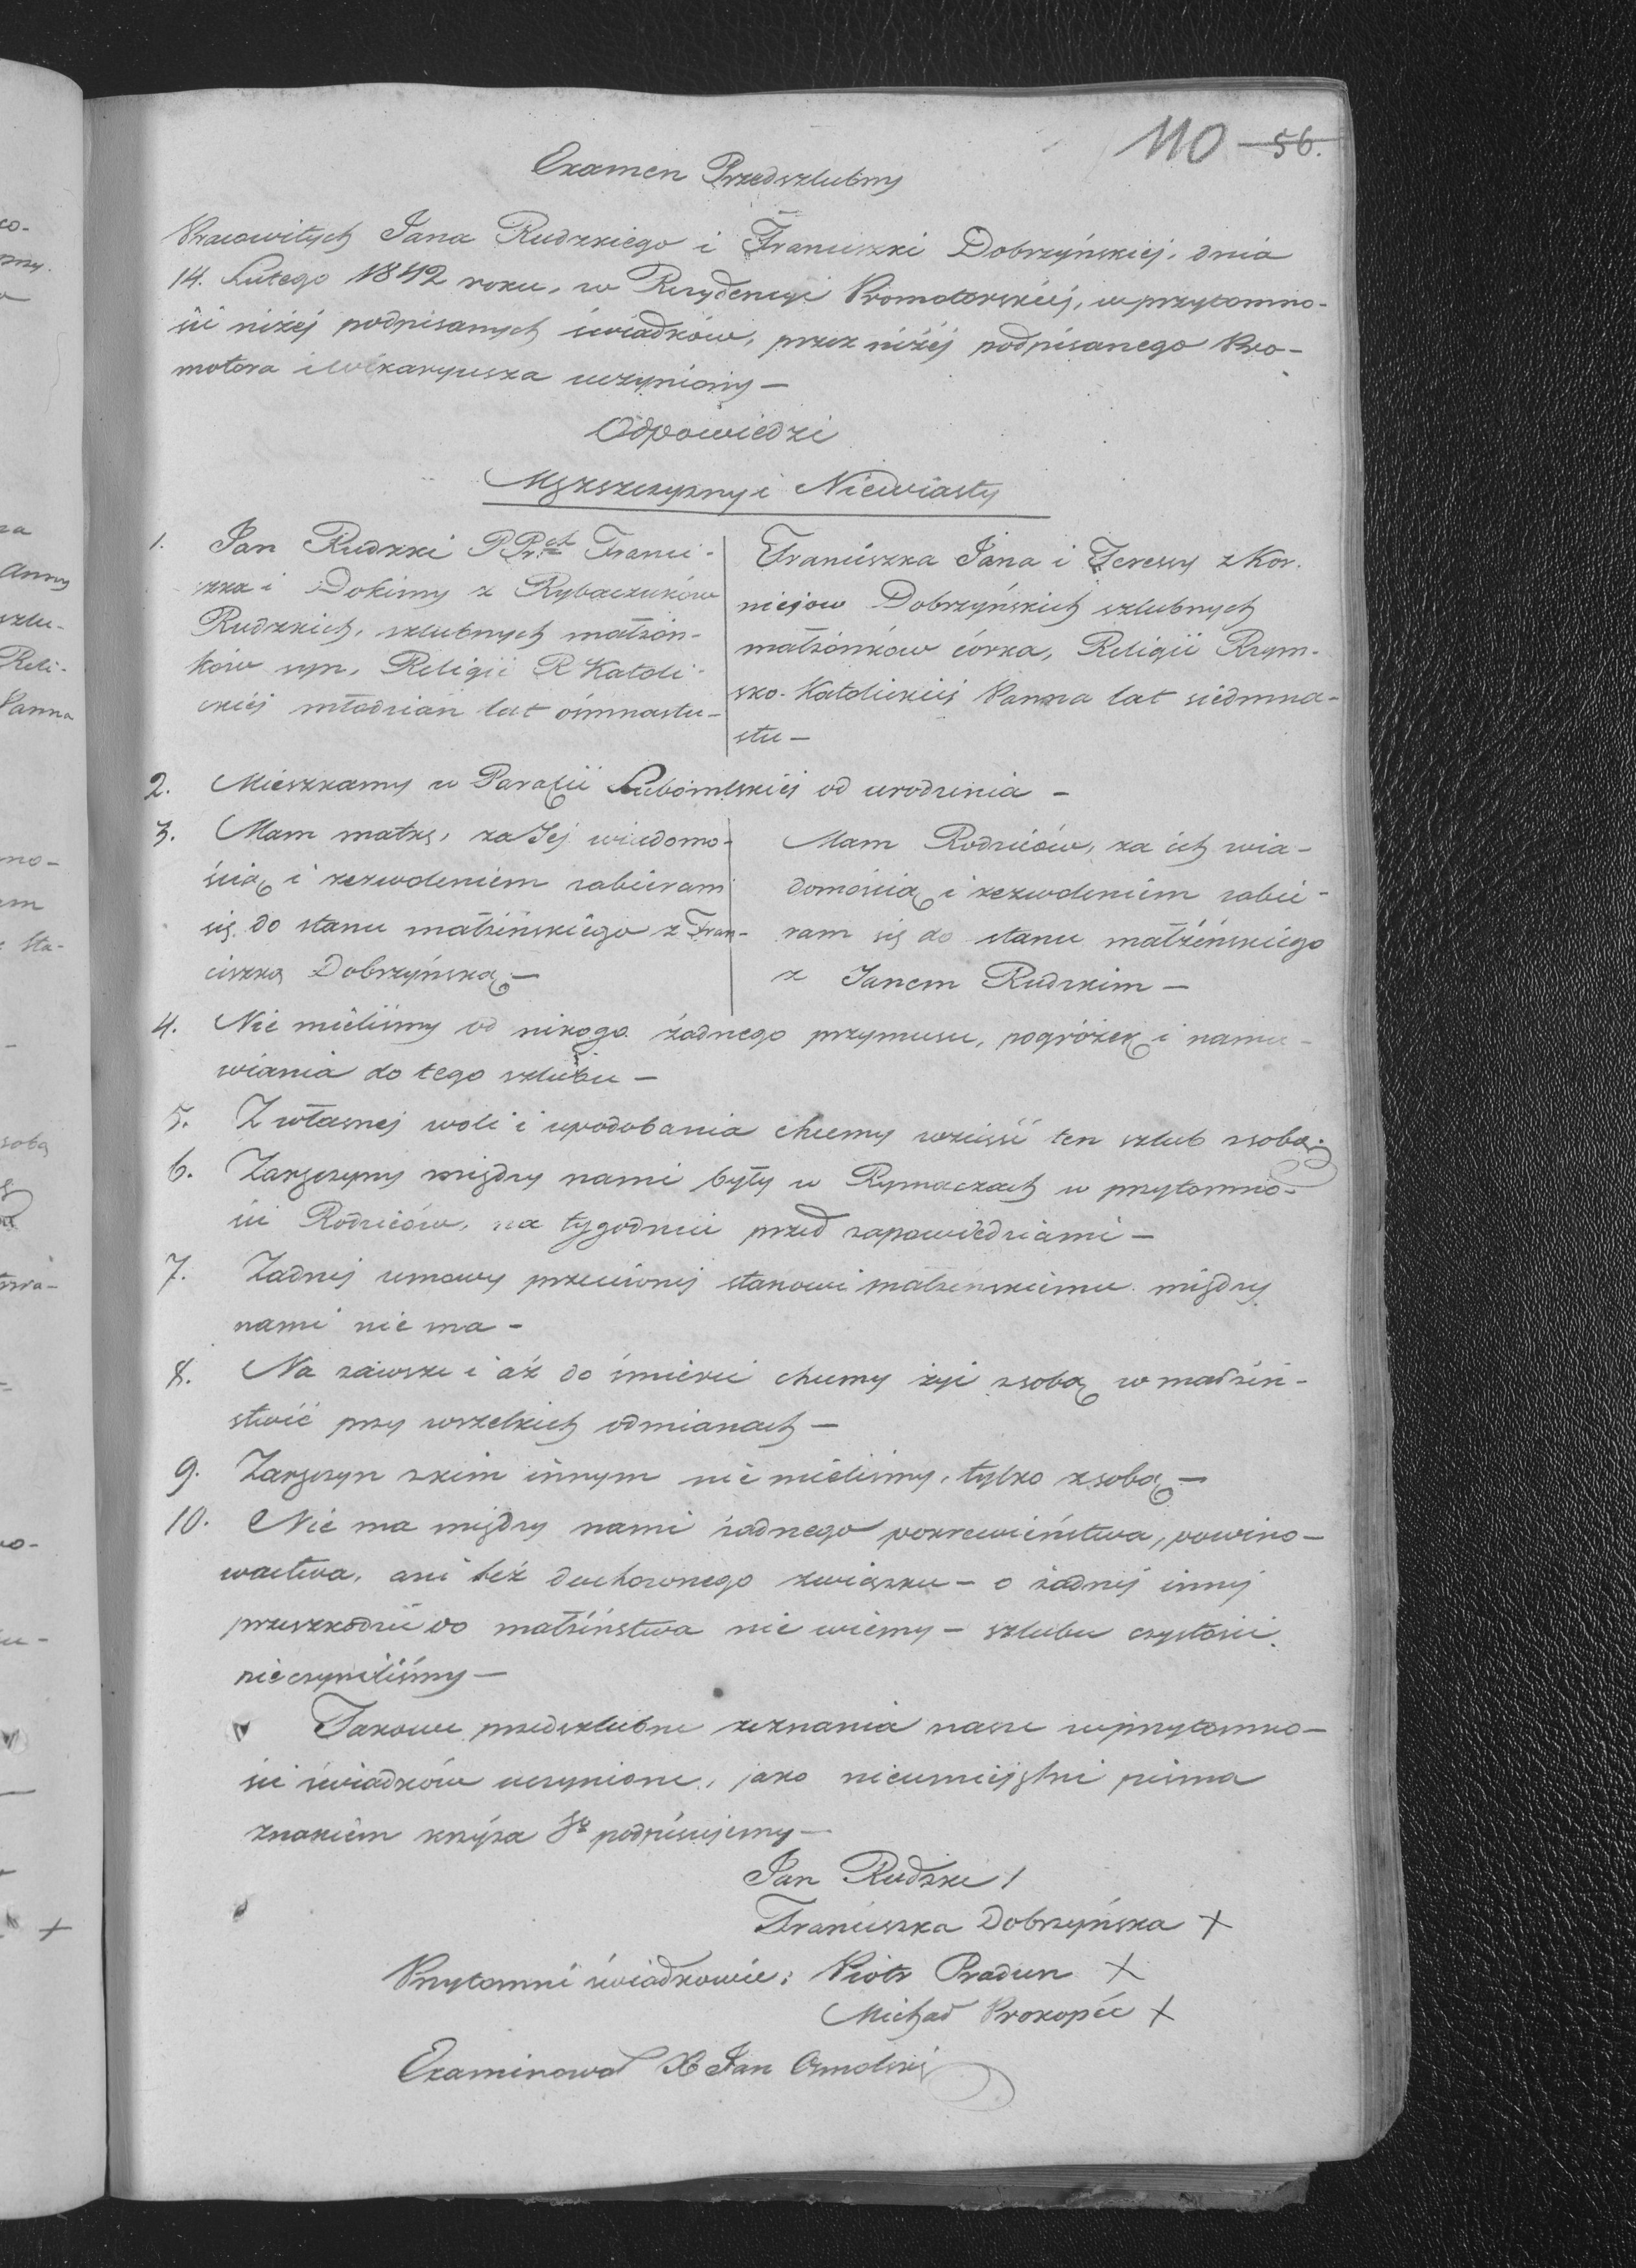 110 56.
Examen Przedszlubny
Pracowitych Jana Rudzkiego i Franciszki Dobrzyńskiej, dnia
14. Lutego 1842 roku, w Rezydencyi Promotorskiej, w przytomno-
ści niżej podpisanych świadków, przez niżej podpisanego Pro-
motora i wikaryusza uczyniony —
Odpowiedzi
Męższczyzny i Niewiasty
1. Jan Rudzki Franci-
szka i Dokimy z Rybaczuków
Rudzkich, szlubnych małżon-
ków syn, Religii R Katoli-
ckiej młodzian lat ośmnastu —
Franciszka Jana i Teressy z Kor-
niejow Dobrzyńskich szlubnych
małżonków córka, Religii Rzym-
sko-Katolickiej Panna lat siedmna-
stu —
2. Mieszkamy w Parafii Lubomlskiej od urodzenia —
3. Mam matkę, za Jej wiadomo-
ścią i zezwoleniem zabieram
się do stanu małżeńskiego z Fran-
ciszką Dobrzyńską —
Mam Rodziców, za ich wia-
domością i zezwoleniem zabie-
ram się do stanu małżeńskiego
z Janem Rudzkim —
4. Nie mieliśmy od nikogo żadnego przymusu, pogróżek i namu-
wiania do tego szlubu —
5. Z własnej woli i upodobania chcemy wziąść ten szlub z sobą.
6. Zaręczyny między nami były w Rymaczach w przytomno-
ści Rodziców, na tygodniu przed zapowiedziami —
7. Żadnej umowy przeciwnej stanowi małżenskiemu między
nami nie ma —
8. Na zawsze i aż do śmierci chcemy żyć z sobą w małżeń-
stwie przy wszelkich odmianach —
9. Zaręczyn z kim innym nie mieliśmy, tylko z sobą —
10. Nie ma między nami żadnego pokrewieństwa, powino-
wactwa, ani też duchownego związku — o żadnej innej
przeszkodzie do małżeństwa nie wiemy — szlubu czystości
nie czyniliśmy —
Takowe przedszlubne zeznania nasze w przytomno-
ści świadków uczynione, jako nieumiejętni pisma
znakiem krzyża Sº podpisujemy —
Jan Rudzki
Franciszka Dobrzyńska +
Przytomni świadkowie: Piotr Pradun X
Michał Prokopec X
Examinował X Jan Osmolski